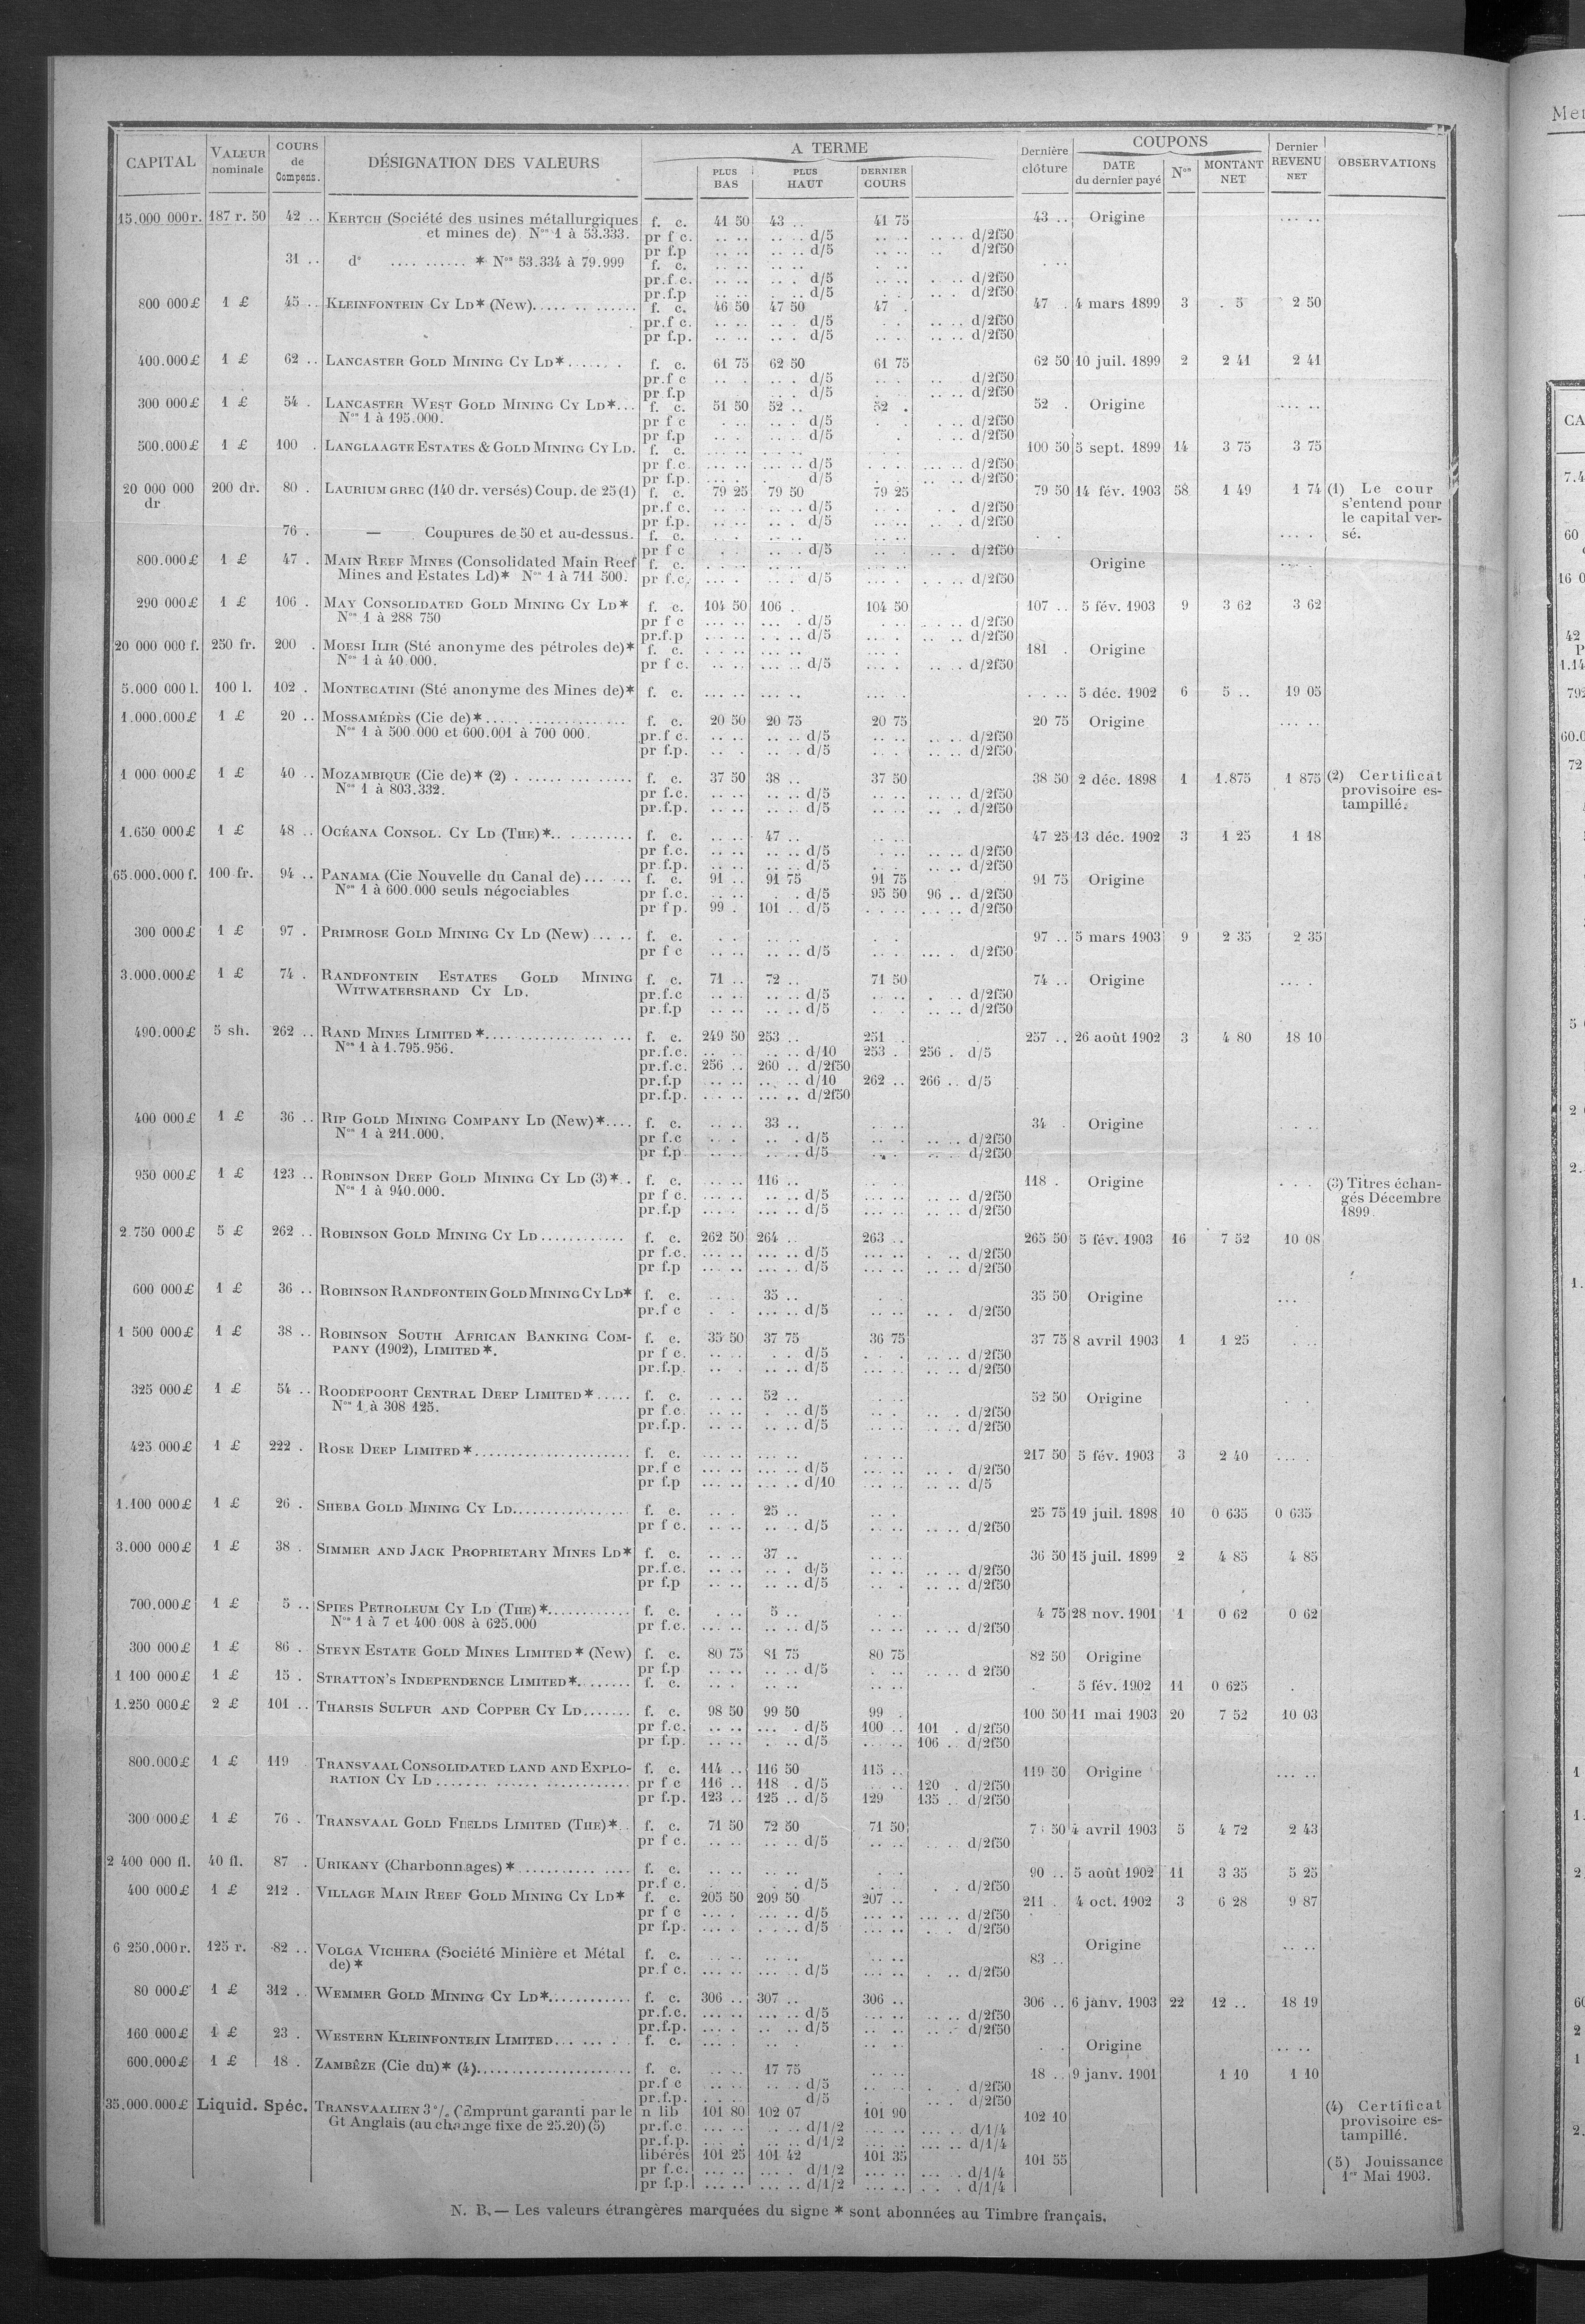 CAPITAL | VALEUR nominale | COURS de Compens. | DÉSIGNATION DES VALEURS | A TERME | PLUS BAS | PLUS HAUT | DERNIER COURS | Dernière clôture | COUPONS | DATE du dernier payé | Nos | MONTANT NET | Dernier REVENU NET | OBSERVATIONS
15.000 000 r. 187 r. 50 42 .. KERTCH (Société des usines métallurgiques f. c. 41 50 43 .. 41 75 43 .. Origine
et mines de) Nos 1 à 53.333. pr f c. d/5 d/2f50
pr f.p d/5 d/2f50
31 .. do * Nos 53.334 à 79.999 f. c.
pr.f.c. d/5 d/2f50
pr.f.p d/5 d/2f50
800 000 £ 1 £ 45 .. KLEINFONTEIN CY LD* (New) f. c. 46 50 47 50 47 . 47 . 4 mars 1899 3 . 5 2 50
pr.f c. d/5 d/2f50
pr f.p. d/5 d/2f50
400.000 £ 1 £ 62 .. LANCASTER GOLD MINING CY LD* f. c. 61 75 62 50 61 75 62 50 10 juil. 1899 2 2 41 2 41
pr.f c d/5 d/2f50
pr f.p d/5 d/2f50
300 000 £ 1 £ 54 . LANCASTER WEST GOLD MINING CY LD* f. c. 51 50 52 .. 52 . 52 . Origine
Nos 1 à 195.000. pr f c d/5 d/2f50
pr f.p d/5 d/2f50
500.000 £ 1 £ 100 . LANGLAAGTE ESTATES & GOLD MINING CY LD. f. c. 100 50 5 sept. 1899 14 3 75 3 75
pr f.c. d/5 d/2f50
pr f.p. d/5 d/2f50
20 000 000 dr 200 dr. 80 . LAURIUM GREC (140 dr. versés) Coup. de 25 (1) f. c. 79 25 79 50 79 25 79 50 14 fév. 1903 58 1 49 1 74 (1) Le cour
s'entend pour
le capital ver-
sé.
pr.f c. d/5 d/2f50
pr f.p. d/5 d/2f50
76 . — Coupures de 50 et au-dessus. f. c.
pr f c d/5 d/2f50
800.000 £ 1 £ 47 . MAIN REEF MINES (Consolidated Main Reef f. c. Origine
Mines and Estates Ld)* Nos 1 à 711 500. pr f.c. d/5 d/2f50
290 000 £ 1 £ 106 . MAY CONSOLIDATED GOLD MINING CY LD* f. c. 104 50 106 . 104 50 107 .. 5 fév. 1903 9 3 62 3 62
Nos 1 à 288 750 pr f c d/5 d/2f50
pr.f.p d/5 d/2f50
20 000 000 f. 250 fr. 200 . MOESI ILIR (Sté anonyme des pétroles de)* f. c. 181 . Origine
Nos 1 à 40.000. pr f c. d/5 d/2f50
5.000 000 l. 100 l. 102 . MONTECATINI (Sté anonyme des Mines de)* f. c. 5 déc. 1902 6 5 .. 19 05
1.000.000 £ 1 £ 20 .. MOSSAMÉDÈS (Cie de)* f. c. 20 50 20 75 20 75 20 75 Origine
Nos 1 à 500 000 et 600.001 à 700 000. pr.f c. d/5 d/2f50
pr f.p. d/5 d/2f50
1 000 000 £ 1 £ 40 .. MOZAMBIQUE (Cie de)* (2) f. c. 37 50 38 .. 37 50 38 50 2 déc. 1898 1 1.875 1 875 (2) Certificat
provisoire es-
tampillé.
Nos 1 à 803.332. pr f.c. d/5 d/2f50
pr.f.p. d/5 d/2f50
1.650 000 £ 1 £ 48 .. OCÉANA CONSOL. CY LD (THE)* f. c. 47 .. 47 25 13 déc. 1902 3 1 25 1 18
pr f.c. d/5 d/2f50
pr.f.p. d/5 d/2f50
65.000.000 f. 100 fr. 94 .. PANAMA (Cie Nouvelle du Canal de) f. c. 91 .. 91 75 91 75 91 75 Origine
Nos 1 à 600.000 seuls négociables pr f.c. d/5 95 50 96 .. d/2f50
pr f p. 99 . 101 .. d/5 d/2f50
300 000 £ 1 £ 97 . PRIMROSE GOLD MINING CY LD (New) f. c. 97 .. 5 mars 1903 9 2 35 2 35
pr f c d/5 d/2f50
3.000.000 £ 1 £ 74 . RANDFONTEIN ESTATES GOLD MINING f. c. 71 .. 72 .. 71 50 74 .. Origine
WITWATERSRAND CY LD. pr.f.c d/5 d/2f50
pr.f.p d/5 d/2f50
490.000 £ 5 sh. 262 .. RAND MINES LIMITED * f. c. 249 50 253 .. 251 .. 257 .. 26 août 1902 3 4 80 18 10
Nos 1 à 1.795.956. pr.f.c. d/10 253 . 256 . d/5
pr.f.c. 256 .. 260 .. d/2f50
pr.f.p d/10 262 .. 266 .. d/5
pr.f.p. d/2f50
400 000 £ 1 £ 36 .. RIP GOLD MINING COMPANY LD (New)* f. c. 33 .. 34 . Origine
Nos 1 à 211.000. pr f.c d/5 d/2f50
pr f.p d/5 d/2f50
950 000 £ 1 £ 123 .. ROBINSON DEEP GOLD MINING CY LD (3)* f. c. 116 .. 118 . Origine (3) Titres échan-
gés Décembre
1899.
Nos 1 à 940.000. pr f c. d/5 d/2f50
pr.f.p d/5 d/2f50
2.750 000 £ 5 £ 262 .. ROBINSON GOLD MINING CY LD f. c. 262 50 264 .. 263 .. 265 50 5 fév. 1903 16 7 52 10 08
pr f.c. d/5 d/2f50
pr f.p d/5 d/2f50
600 000 £ 1 £ 36 .. ROBINSON RANDFONTEIN GOLD MINING CY LD* f. c. 35 .. 35 50 Origine
pr.f c d/5 d/2f50
1 500 000 £ 1 £ 38 .. ROBINSON SOUTH AFRICAN BANKING COM- f. c. 35 50 37 75 36 75 37 75 8 avril 1903 1 1 25
PANY (1902), LIMITED*. pr f c. d/5 d/2f50
pr.f.p. d/5 d/2f50
325 000 £ 1 £ 54 .. ROODEPOORT CENTRAL DEEP LIMITED* f. c. 52 .. 52 50 Origine
Nos 1 à 308 125. pr f.c. d/5 d/2f50
pr.f.p. d/5 d/2f50
425 000 £ 1 £ 222 . ROSE DEEP LIMITED* f. c. 217 50 5 fév. 1903 3 2 40
pr.f c d/5 d/2f50
pr f.p d/10 d/5
1.100 000 £ 1 £ 26 . SHEBA GOLD MINING CY LD f. c. 25 .. 25 75 19 juil. 1898 10 0 635 0 635
pr f c. d/5 d/2f50
3.000 000 £ 1 £ 38 . SIMMER AND JACK PROPRIETARY MINES LD* f. c. 37 .. 36 50 15 juil. 1899 2 4 85 4 85
pr.f.c. d/5 d/2f50
pr f.p d/5 d/2f50
700.000 £ 1 £ 5 .. SPIES PETROLEUM CY LD (THE)* f. c. 5 .. 4 75 28 nov. 1901 1 0 62 0 62
Nos 1 à 7 et 400 008 à 625.000 pr f.c. d/5 d/2f50
300 000 £ 1 £ 86 . STEYN ESTATE GOLD MINES LIMITED* (New) f. c. 80 75 81 75 80 75 82 50 Origine
pr f.p d/5 d 2f50
1 100 000 £ 1 £ 15 . STRATTON'S INDEPENDENCE LIMITED* f. c. 5 fév. 1902 11 0 625
1.250 000 £ 2 £ 101 .. THARSIS SULFUR AND COPPER CY LD f. c. 98 50 99 50 99 . 100 50 11 mai 1903 20 7 52 10 03
pr f.c. d/5 100 .. 101 . d/2f50
pr f.p. d/5 106 .. d/2f50
800.000 £ 1 £ 119 TRANSVAAL CONSOLIDATED LAND AND EXPLO- f. c. 114 .. 116 50 115 .. 119 50 Origine
RATION CY LD pr f c 116 .. 118 . d/5 120 . d/2f50
pr f.p. 123 .. 125 .. d/5 129 135 .. d/2f50
300 000 £ 1 £ 76 . TRANSVAAL GOLD FIELDS LIMITED (THE)* f. c. 71 50 72 50 71 50 50 4 avril 1903 5 4 72 2 43
pr f c. d/5 d/2f50
2 400 000 fl. 40 fl. 87 . URIKANY (Charbonnages)* f. c. 90 .. 5 août 1902 11 3 35 5 25
pr.f c. d/5 d/2f50
400 000 £ 1 £ 212 . VILLAGE MAIN REEF GOLD MINING CY LD* f. c. 205 50 209 50 207 .. 211 . 4 oct. 1902 3 6 28 9 87
pr f c d/5 d/2f50
pr f.p. d/5 d/2f50
6 250.000 r. 125 r. 82 .. VOLGA VICHERA (Société Minière et Métal f. c. 83 .. Origine
de)* pr.f c. d/5 d/2f50
80 000 £ 1 £ 312 . WEMMER GOLD MINING CY LD* f. c. 306 .. 307 .. 306 .. 306 .. 6 janv. 1903 22 12 .. 18 19
pr.f.c. d/5 d/2f50
pr.f.p. d/5 d/2f50
160 000 £ 1 £ 23 . WESTERN KLEINFONTEIN LIMITED f. c. Origine
600.000 £ 1 £ 18 . ZAMBÈZE (Cie du)* (4) f. c. 17 75 18 .. 9 janv. 1901 1 10 1 10
pr.f c d/5 d/2f50
pr.f.p. d/5 d/2f50
35.000.000 £ Liquid. Spéc. TRANSVAALIEN 3 % (Emprunt garanti par le n lib 101 80 102 07 101 90 102 10 (4) Certificat
provisoire es-
tampillé.
Gt Anglais (au change fixe de 25.20) (5) pr.f.c. d/1/2 d/1/4
pr.f.p. d/1/2 d/1/4
libérés 101 25 101 42 101 35 101 55 (5) Jouissance
1er Mai 1903.
pr f.c. d/1/2 d/1/4
pr f.p. d/1/2 d/1/4
N. B. — Les valeurs étrangères marquées du signe * sont abonnées au Timbre français.